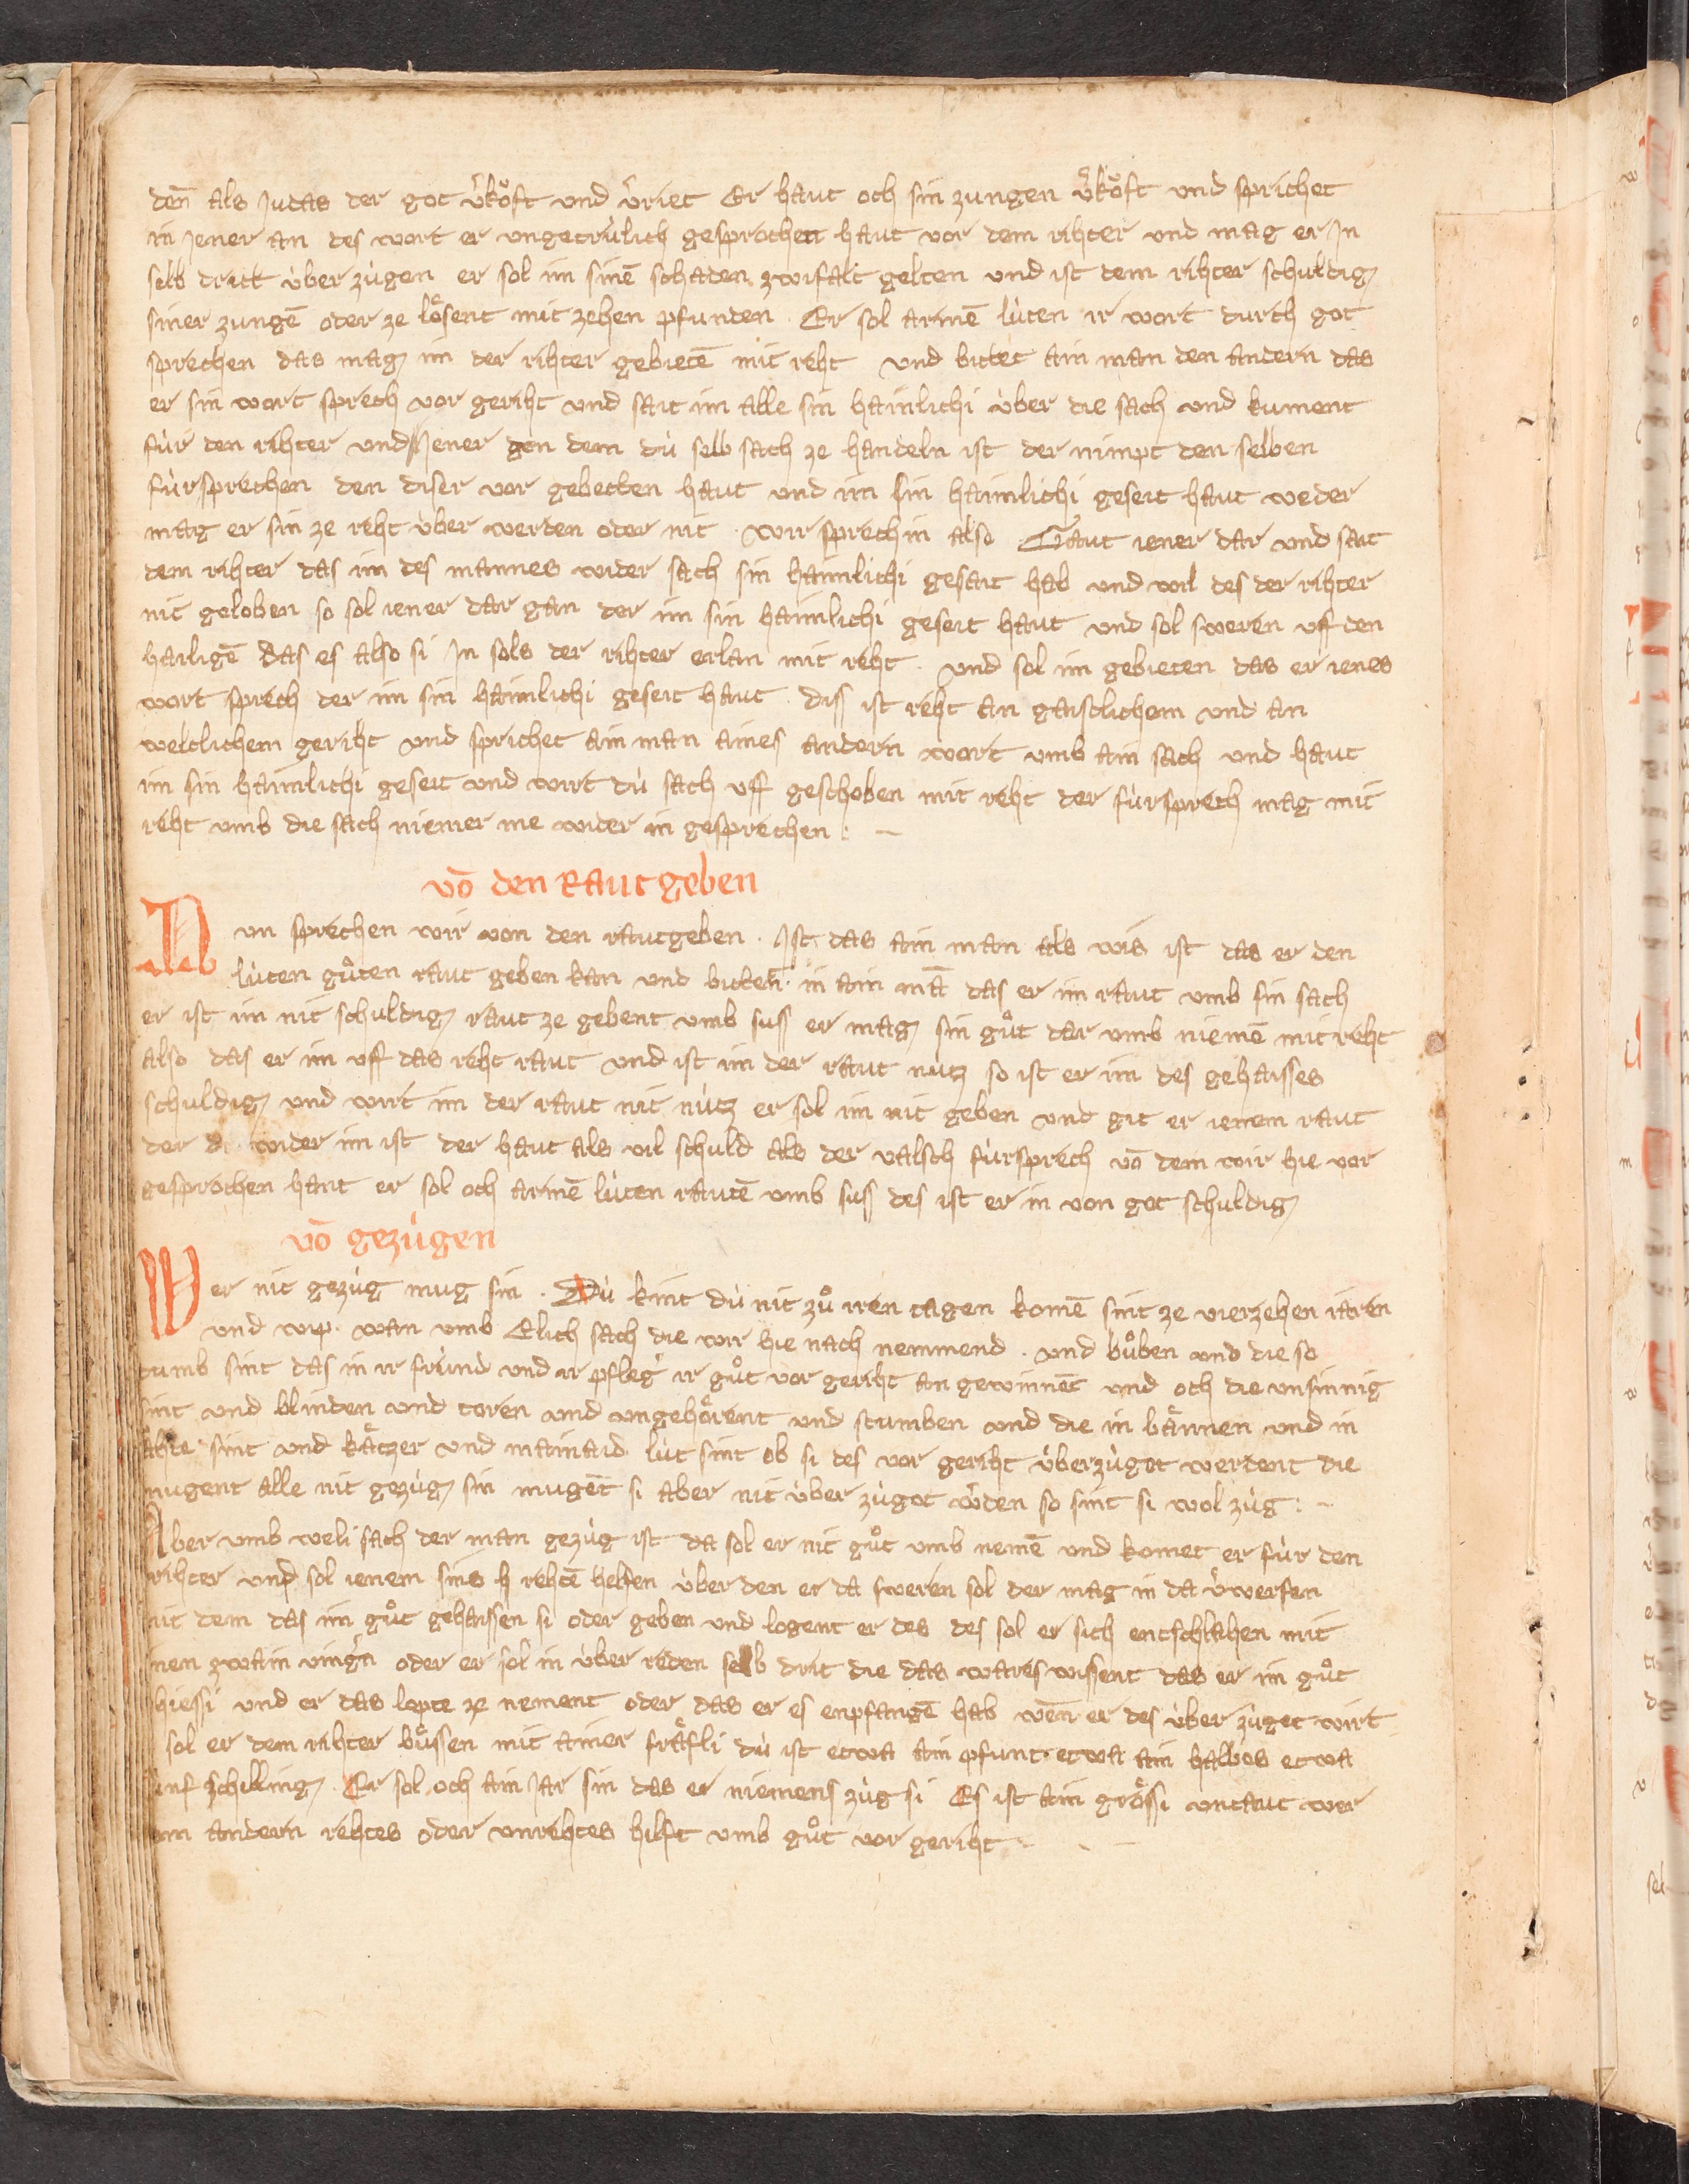 den̄ als Judas der got v̛koͤft und v̛riet Er haut och sin zungen v̛koͤft und sprichet
in Jener an des wort er ungetrúlich gesprochen haut vor dem rihter und mag er Jn
selb dritt úber zúgen er sol im sinē schaden zwifalt gelten und ist dem rihter schuldig
siner zungē oder ze loͤsent mit zehen pfunden . Er sol armē lúten ir wort durch got
sprechen das mag im der rihter gebietē mit reht und bittet ain man den andern das
er sin wort sprech vor geriht und sait im alle sin haimlichi úber die sach und kument
fúr den rihter und Jener gen dem dú selb sach ze handeln ist der nimpt den selben
fúrsprechen den diser vor gebetten haut und im sin haimlichi geseit haut weder
mag er sin ze reht úber werden oder nit . wir sprechin also Gaut iener dar und sait
dem rihter das im des mannes wider sach sin haimlichi gesait hab und wil des der rihter
nit geloben so sol iener dar gan der im sin haimlichi geseit haut und sol sweren uff den
hailigē das es also si Jn sols der rihter erlan mit reht . und sol im gebieten das er ienes
wort sprech der im sin haimlichi geseit haut . diss ist reht an gaistlichem und an
weltlichem geriht und sprichet ain man aines andern wort umb ain sach und haut
im sin haimlichi geseit und wirt dú sach uff geschoben mit reht der fúrsprech mag mit
reht umb die sach niemer me wider in gesprechen : ~
vō den Rautgeben
Nun sprechen wir von den rautgeben . Jst das ain man als wis ist das er den
lúten guͦten raut geben kan und bitten̄ in ain mā das er im raut umb sin sach
er ist im nit schuldig raut ze gebent umb suss er mag sin guͦt dar umb niemē mit reht
also das er im uff das reht raut und ist im der raut nutz so ist er im des gehaisses
schuldig und wirt im der raut nit nútz er sol im nit geben und git er ienem raut
der da wider im ist der haut als vil schuld als der valsch fúrsprech vō dem wir hie vor
gesprochen hant er sol och armē lúten rautē umb suss des ist er in von got schuldig
vō gezúgen
Wer nit gezúg mug sin . Dú kint dú nit zuͦ iren tagen komē sint ze vierzehen iaren
und wip . wan umb Elich sach die wir hie nach nemmend . und buͦben und die so
tumb sint das in ir frúnd und ir pfleg̛ ir guͦt vor geriht an gewinnēt und och die unsinnig
sint und blinden und toren und ungehoͤrent und stumben und die in baͤnnen und in
ahte sint und kaͤtzer und mainaid lút sint ob si des vor geriht úberzúget werdent die
mugent alle nit gezúg sin mugēt si aber nit úber zúget w̛den so sint si wol zúg : ~
Aber umb weli sach der man gezúg ist da sol er nit guͦt umb nemē und komet er fúr den
rihter und sol ienem sins h rehtē helfen úber den er da sweren sol der mag in da v̛werfen
mit dem das im guͦt gehaissen si oder geben und logent er des des sol er sich entschlahen mit
sinen zwain ving̛n oder er sol in úber reden selb drit die das wares wissent das er im guͦt
hiessi und er das lopte ze nement oder das er es enpfangē hab wen̄ er des úber zúget wirt
sol er dem rihter buͤssen mit ainer fraͤfli dú ist etwa ain pfunt etwa ain halbes etwa
fúnf schilling . Er sol och ain Jar sin das er niemens zúg si Es ist ain groͤssi untaut wer
dem andern rehtes oder unrehtes hilft umb guͦt vor geriht